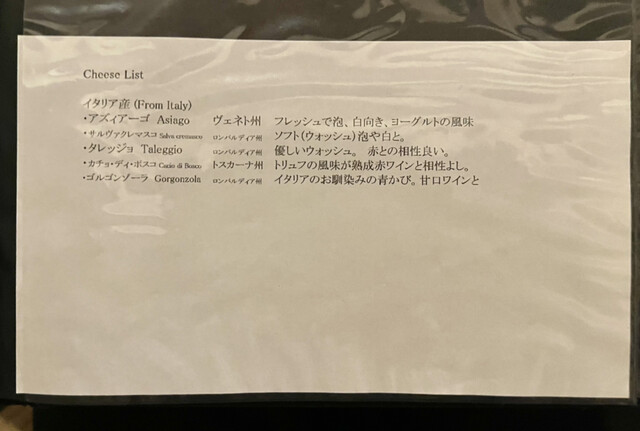 Cheese List
イタリア産 (From Italy)
・アズィアーゴ Asiago ヴェネト州 フレッシュで泡、白向き、ヨーグルトの風味
・サルヴァクレマスコ Salva cremasco ロンバルディア州 ソフト(ウォッシュ)泡や白と。
・タレッジョ Taleggio ロンバルディア州 優しいウォッシュ。 赤との相性良い。
・カチョ・ディ・ボスコ Cacio di Bosco トスカーナ州 トリュフの風味が熟成赤ワインと相性よし。
・ゴルゴンゾーラ Gorgonzola ロンバルディア州 イタリアのお馴染みの青かび。甘口ワインと